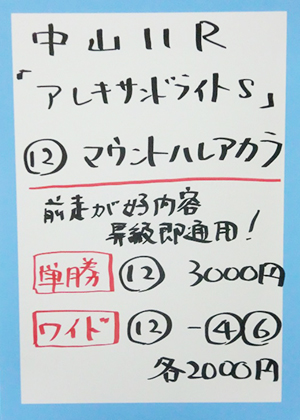 中山11R
「アレキサンドライトS」
⑫ マウントハレアカラ
前走が好内容
昇級即通用！
単勝 ⑫ 3000円
ワイド ⑫-④⑥
各2000円